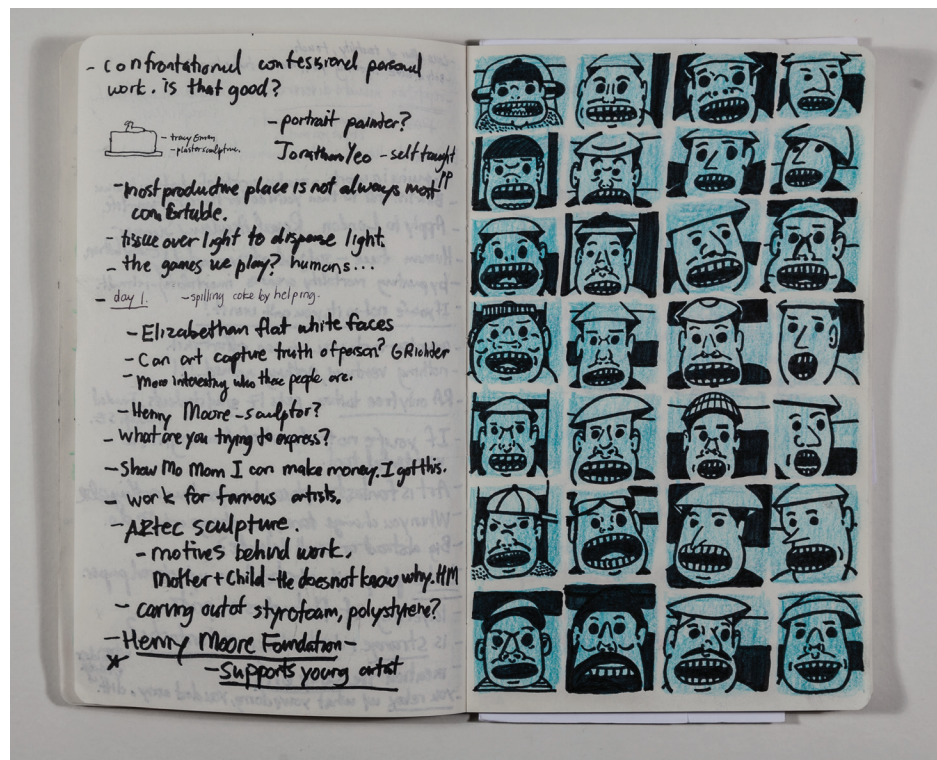 - confrontational confessional personal
work. is that good?
- portrait painter?
- tracy Emin
- plaster sculpture.
Jonathan Yeo - self taught
- most productive place is not always most
comfortable.
- tissue over light to disperse light.
- the games we play? humans...
- day 1. - spilling coke by helping.
- Elizabethan flat white faces
- Can art capture truth of person? G Richter
- More interesting who these people are.
- Henry Moore - sculptor?
- what are you trying to express?
- Show Mo Mom I can make money. I got this.
- work for famous artists.
- AZtec sculpture.
- motives behind work.
Mother + Child - He does not know why. HM
- carving out of styrofoam, polystyrene?
- Henry Moore Foundation -
- Supports young artist